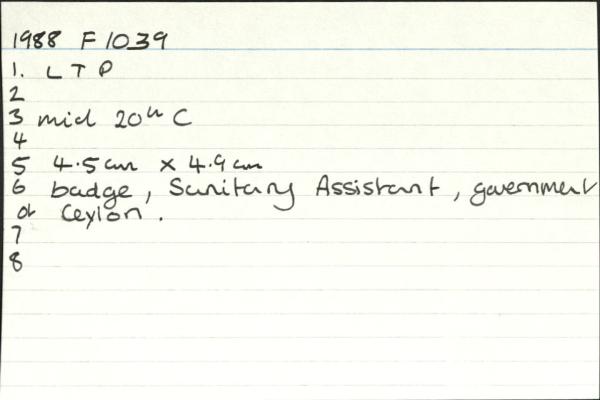 1988 F1039
1. LTP
2
3 mid 20th C
4
5 4.5cm x 4.9cm
6 badge, Sanitary Assistant, government
of Ceylon.
7
8